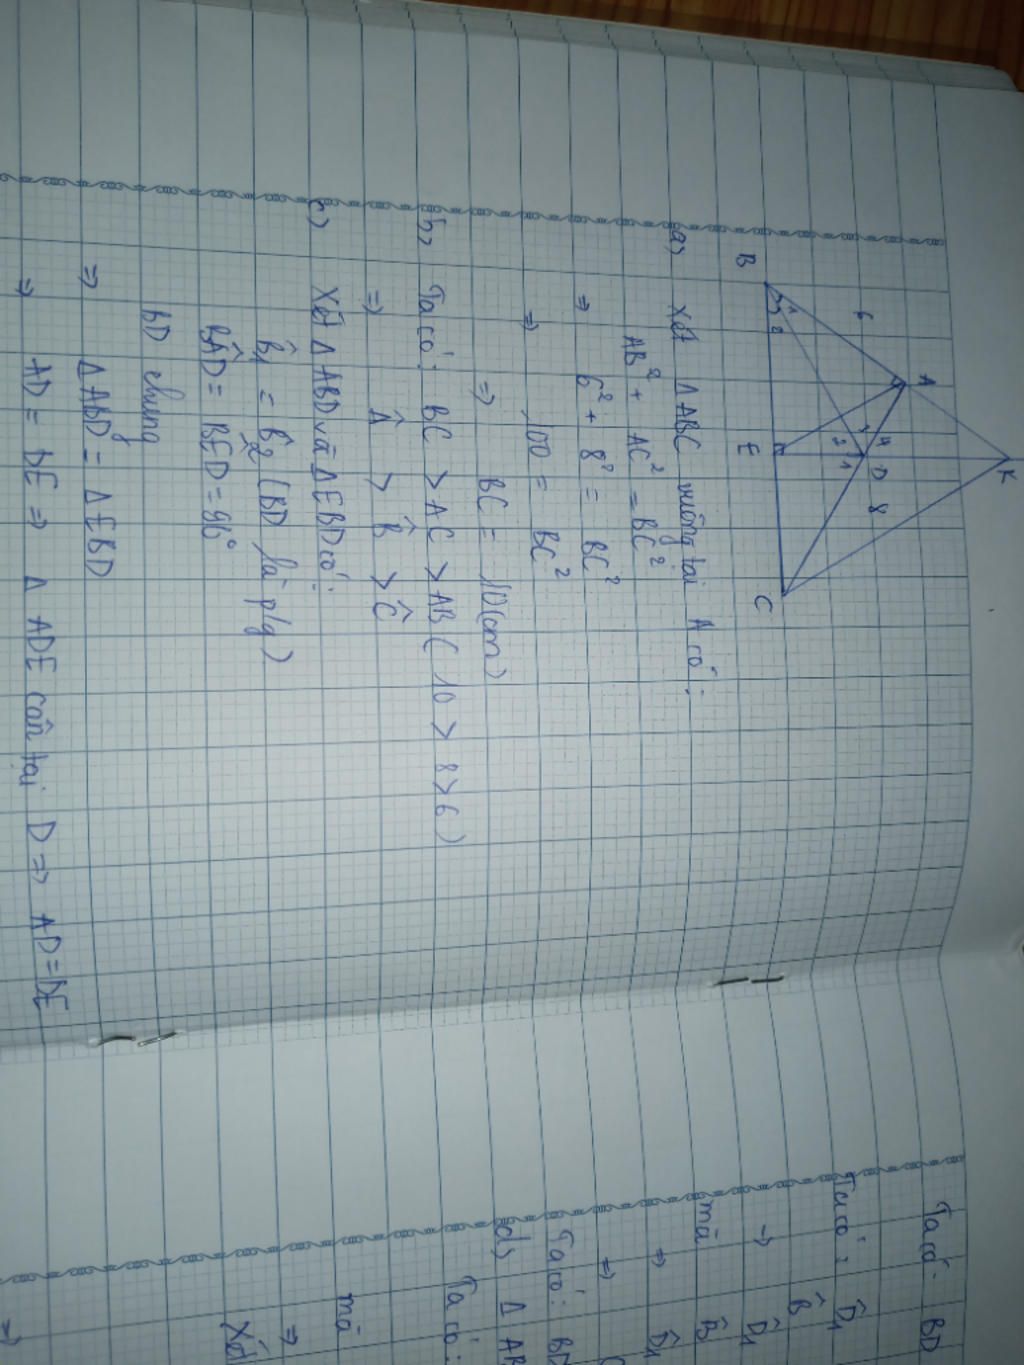 K
A
6
H
D
8
1
2
1
1
2
B
E
C
a) Xét Δ ABC vuông tại A có:
AB² + AC² = BC²
=> 6² + 8² = BC²
=> 100 = BC²
=> BC = 10 (cm)
b, Ta có: BC > AC > AB ( 10 > 8 > 6 )
=> Â > B̂ > Ĉ
c) Xét Δ ABD và Δ EBD có:
B̂₁ = B̂₂ ( BD là p/g )
BÂD = BÊD = 90°
BD chung
=> Δ ABD = Δ EBD
=> AD = DE => Δ ADE cân tại D => AD = DE
Ta có: BD
Ta có: D̂₁
B̂
=> D̂₁
mà B̂
=> D̂₁
=>
Ta có: BD
d) Δ AB
Ta có:
mà
=>
Xét
=>